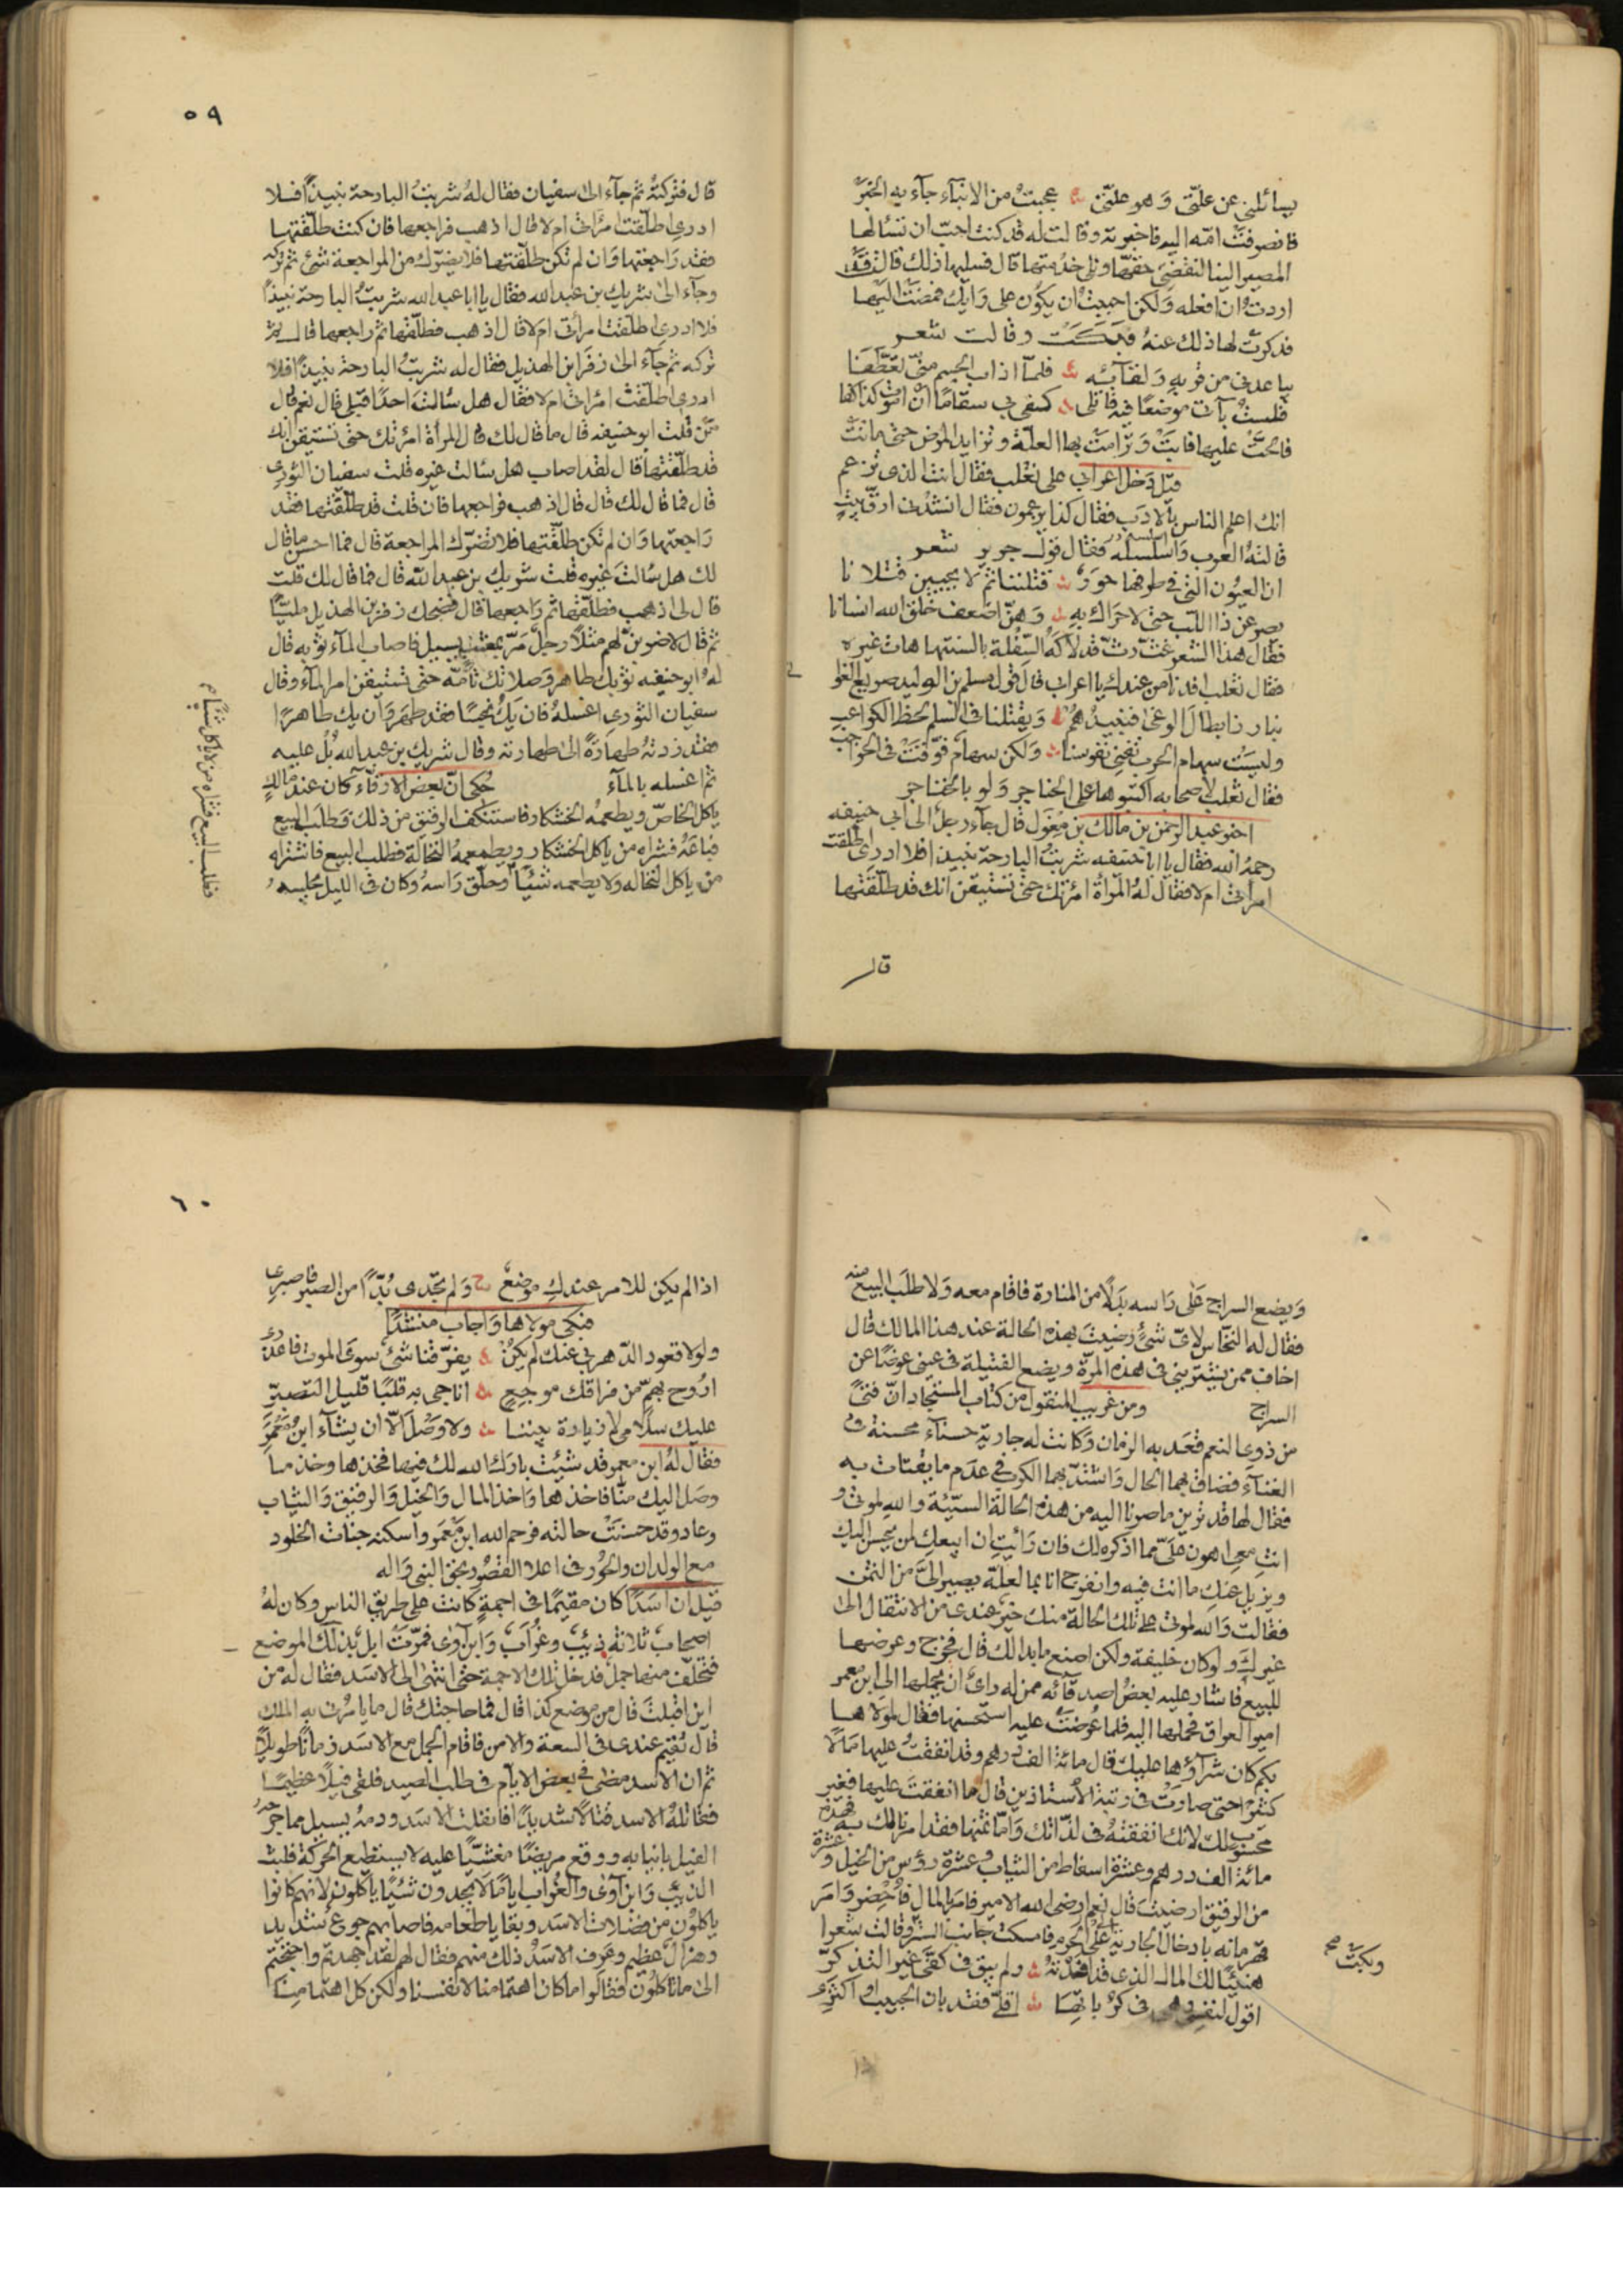 يسائلني عن علّتي وَهو علّتي ۞ عجبتُ من الانبآء جآء به الخبَرْ
فانصرفَتْ امّه اليه فاخبرته وقالت له قد كنت احبّ ان تسألها
المصير الينا لنقضيَ حقّها ونلي خدمتها قال فسليها ذلك قالت قد
اردتُ ان افعله وَلكن احببتُ ان يكوُن على رَايك فمضَت اليها
فذكرتْ لها ذلك عنهُ فبَكَتْ وقالت شعـر
يباعدني من قربهِ وَلقآئِه ۞ فلمّا اذاب الجسم منّي تعطَّفَا
فلستُ بآتٍ موضعًا فيه قاتلي ۞ كفى بي سقامًا أنْ اموُت كذا كفا
فالحّتْ عليها فابَتْ وَترامَتْ بها العلّة وتزايد المرض حتى ماتتْ
قيل دَخل اعرابي على ثعلب فقال انت الذي تزعم
انك اعلم الناس بالادَب فقال كذا يزعمون فقال انشدني ارقّ بيتٍ
قالتهُ العرب وَاسلسله فقال قول جرير شعـر
ان العيوُن التي في طرفها حوَرٌ ۞ قتلننا ثم لا يحيين قتلانا
يصرعن ذا اللّب حتى لا حرَاك بهِ ۞ وَهنّ اضعف خلق الله انسانا
فقال هذا الشعر غثّ رثّ قد لاكَهُ السِّفلة بالسنتها هات غيره
فقال ثعلب افدنا من عندك يا اعرابي قال قول مسلم بن الوليد صريع الغوا
نبارز ابطالَ الوغى فنبيدُهُمْ ۞ وَيقتلنا في السلم لحظ الكواعب
وليسَتْ سهام الحرب تفني نفوسنا ۞ وَلكن سهامٌ فوّقَتْ في الحواجب
فقال ثعلب لاصحابه اكتبوها على الحناجر وَلو بالخناجر
اخو عبد الرحمن بن مالك بن مِغوَل قال جآء رجلٌ الى ابي حنيفه
رحمهُ الله فقال يا ابا حنيفه شربتُ البارحة نبيذًا فلا ادري اطلّقت
امرأتي ام لا فقال لهُ المرأة امرأتك حتى تستيقن انك قد طلّقتها
قال
٥٩
قال فتركتهُ ثم جآء الى سفيان فقال لهُ شربتُ البارحة نبيذًا فلا
ادري اطلّقت امرأتي ام لا قال اذهب فراجعها فان كنت طلّقتها
فقد رَاجعتها وَان لم تكن طلّقتها فلا يضرّك من المراجعة شئ ثم تركه
وجآء الى شريك بن عبد الله فقال يا ابا عبد الله شربتُ البارحة نبيذًا
فلا ادري اطلّقت امرأتي ام لا قال اذهب فطلّقها ثم راجعها قال ثم
تركه ثم جآء الى زفَر بن الهذيل فقال له شربتُ البارحة نبيذًا فلا
ادري اطلّقت امرأتي ام لا فقال هل سُالتَ احدًا قبلي قال نعم قال
مَن قلت ابو حنيفه قال ما قال لك قال المرأة امرأتك حتى تستيقن انك
قد طلّقتها قال لقد اصاب هل سُالت غيره قلت سفيان الثوري
قال فما قال لك قال قال اذهب فراجعها فان قلت قد طلّقتها فقد
رَاجعتها وَان لم تكن طلّقتها فلا تضرّك المراجعة قال فما احسن ما قال
لك هل سُالتَ غيره قلت شريك بن عبد الله قال فما قال لك قلت
قال لي اذهب فطلّقها ثم رَاجعها قال فضحك زفر بن الهذيل مليّا
ثم قال لاضربنّ لهم مثلًا رجلٌ مَرّ بمثعب يسيل فاصاب المآء ثوبه قال
لهُ ابو حنيفه ثوبك طاهر وَصلاتك تآمّه حتى تستيقن امر المآء وقال
سفيان الثوري اغسلهُ فان يكُ نجسًا فقد طهرَ وَان يك طاهرًا
فقد زدتهُ طهارَةً الى طهارته وقال شريك بن عبد الله بُل عليه
ثم اغسله بالمآء حُكى انّ بعض الارقّاء كان عند مالكٍ
ياكل الخاصّ ويطعمهُ الخشكار فاستنكف الرقيق من ذلك وَطلَب البيع
فباعَهُ فشراه من ياكل الخشكار ويطعمهُ النخالة فطلب البيع فاشتراه
من ياكل النخاله ولا يطعمه شئيًا وحلق رَاسهُ وكان في الليل يجلسهُ
فطلب البيع فشراه من لا ياكل شئيًا
وَيضع السراج عَلى رَاسه بدَلًا من المنارة فاقام معه وَلا طلَب البيع منه
فقال له النخّاس لايّ شئٍ رضيتَ بهذه الحالة عند هذا المالك قال
اخاف ممن يشتريني في هذه المرّة ويضع الفتيلة في عيني عوضًا عن
السراج ومن غريب المنقول من كتاب المستجاد انّ فتًى
من ذوي النعم قعَد به الزمان وَكانت له جارية حسنآء محسنة في
الغنآء فضاق بهما الحال وَاشتدّ بهما الكرب في عدَم ما يقتات به
فقال لها قد ترين ما صرنا اليه من هذه الحالة السيّئة والله لموتي و
انتِ معي اهون علَىّ مما اذكره لك فان رَأيتِ ان ابيعكِ لمن يحسن اليك
ويزيل عنكِ ما انت فيه وانفرج انا بما لعلّه يصير الىَّ من الثمن
فقالت وَالله لموتي على تلك الحالة منك خيرٌ عندي من الانتقال الى
غيركَ ولو كان خليفة ولكن اصنع ما بدا لك قال فخرج وعرضها
للبيع فاشار عليه بعضُ اصدقآئه ممن له رايٌ ان يحملها الى ابن معمر
امير العراق فحملها اليه فلما عُرضَتْ عليه استحسنها فقال لمولاها
بكم كان شرآؤها عليك قال مائة الف درهم وقد انفقتُ عليها مَالًا
كثيرًا حتى صارَتْ في رتبة الاستاذين قال ما انفقتَ عليها فغير
محسوب لك لانك انفقتهُ في لذّاتك وَامّا ثمنها فقد امرنا لك به فهذه
مائة الف درهم وعشرة اسفاط من الثياب وعشرة رؤُس من الخيل وعشرة
من الرقيق ارضيتَ قال نعم ارضى الله الامير فامر بالمال فاُحضِر وَامَر
قهرمانه بادخال الجارية على الحرم فامسكت جانب السّتر وقالت شعرا
وبكَتْ صح
هنئيًا لك المال الذي قد افدْتهُ ۞ ولم يبق في كفّي غير التذكرّ
اقول لنفسي وهي في كرُباتهِا ۞ اقلّي فقد بان الحبيب او اكثري
٦٠
اذا لم يكن للامر عندكِ موضعٌ ۞ وَلم تجدي بُدّاً من الصبر فاصبري
فبكى مولاها وَاجاب منشدًا
ولولا قعود الدّهر بي عنك لم يكنُ ۞ يفرّقنا شئ سوى الموت فاعذري
ارُوح بهمٍّ من فراقك موجِعٍ ۞ اناجي به قلبًا قليل التصبّرِ
عليك سلامي لا زيارة بيننا ۞ ولا وَصْل الّا ان يشآء ابن مَعْمَرِ
فقال لهُ ابن معمر قد شئتُ باركَ الله لك فيها فخذها وخذ ما
وصَل اليك منّا فاخذها وَاخذ المال وَالخيل وَالرقيق وَالثياب
وعاد وقد حسنَتْ حالته فرحم الله ابن مَعْمَر واسكنه جنات الخلود
مع الولدان والحوُر في اعلا القصُور بحق النبي وَاله
قيل ان اسَدًا كان مقيمًا في اجمةٍ كانت على طريق الناس وكان لهُ
اصحاب ثلاثة ذيئب وغرُاب وَابن آوى فمرّت ابل بذلك الموضع
فتخلّف منها جمل فدخل تلك الاجمة حتى انتهى الى الاسَد فقال له من
اين اقبلت قال من موضع كذا قال فما حاجتك قال ما يامرُني به الملك
قال تُقيم عندي في السعة والامن فاقام الجمل مع الاسَد زمانًا طويلاً
ثم ان الاسد مضى في بعض الايّام في طلب الصيد فلقى فيلًا عظيمًا
فقاتلهُ الاسد قتالًا شديدًا فانفلت الاسَد ودمهُ يسيل مما جرحهُ
الفيل بانيابه ووقع مريضًا مغشيّاً عليه لا يستطيع الحركة فلبث
الذيئب وَابن آوى والغرُاب ايامًا لا يجدون شئيًا ياكلونه لانهم كانوا
ياكلوُن من فضلات الاسَد وبقايا طعامه فاصابهم جوع شديد
وهزالٌ عظيم وعرف الاسَدُ ذلك منهم فقال لهم لقد اجهدتم واحتجتم
الى ما تاكلوُن فقالوا ما كان اهتمامنا لانفسنا ولكن كل اهتمامنا